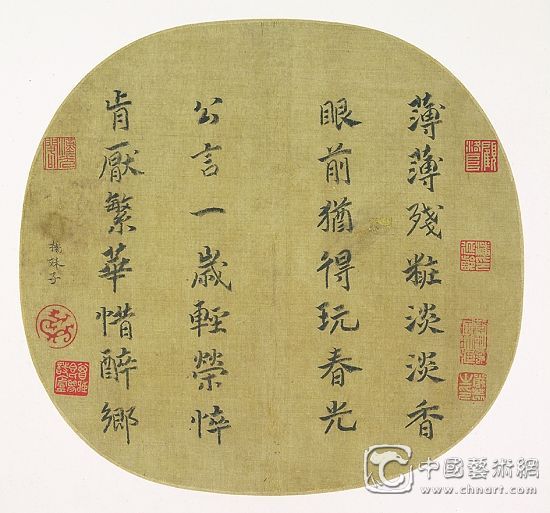 薄薄殘粧淡淡香
眼前猶得玩春光
公言一歲輕榮悴
肯厭繁華惜醉鄉
楊妹子
中國藝術網
www.chnart.com